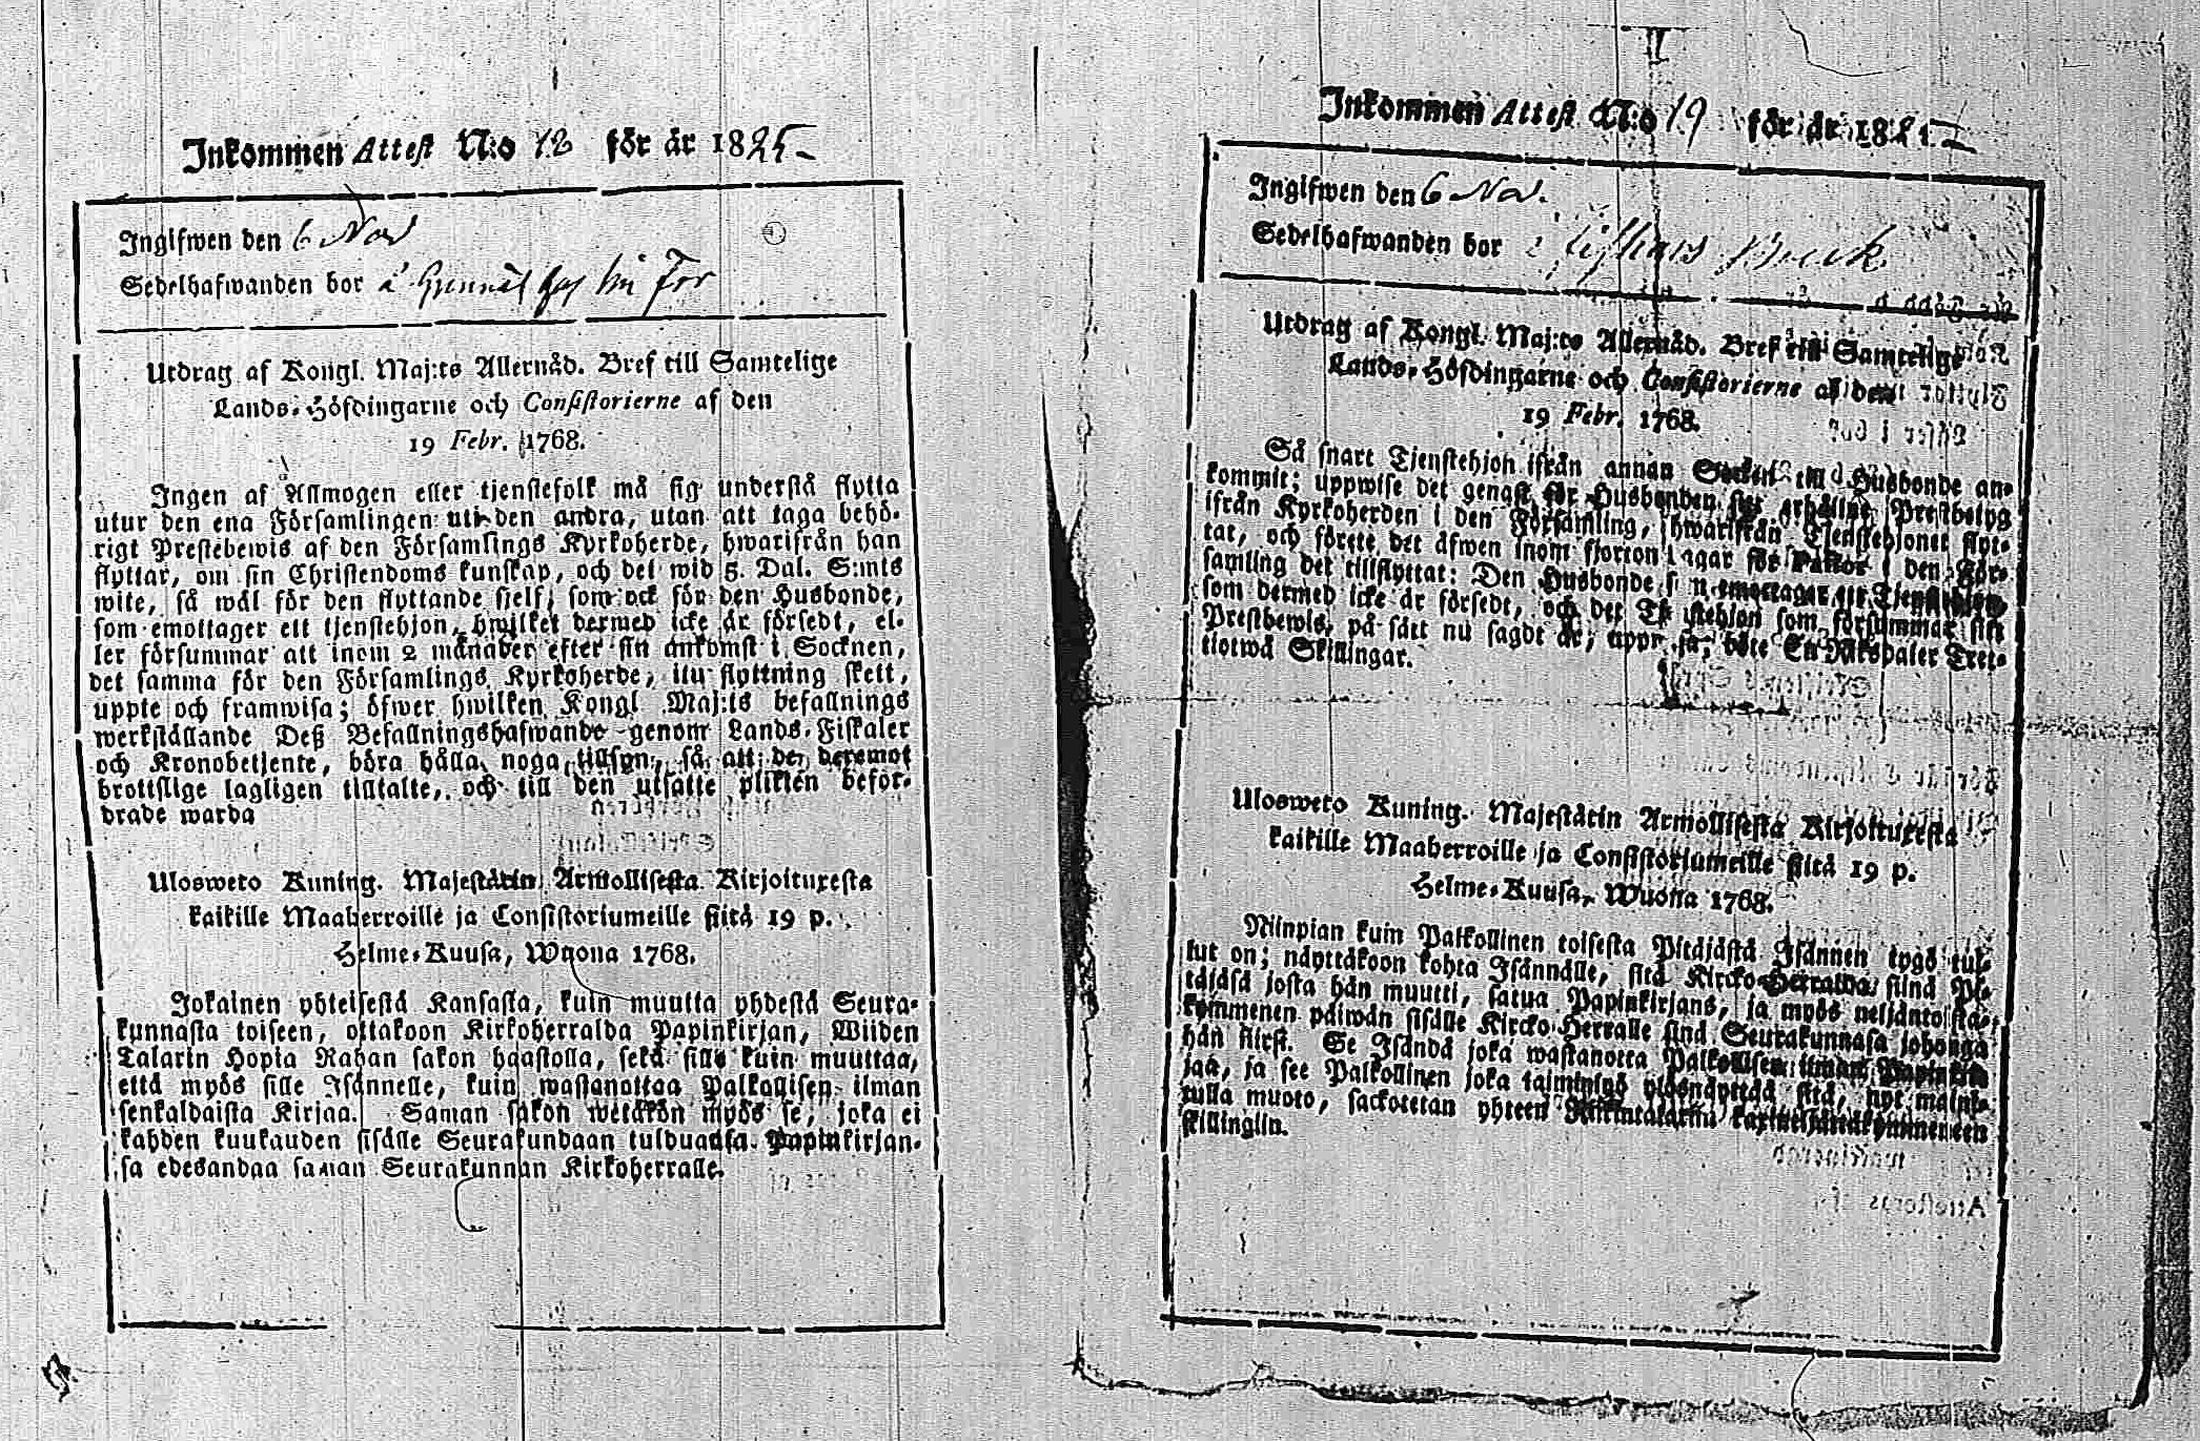 Inkommen Attest N:o 18 för år 1825
Ingifwen den 6 Nov
Sedelhafwanden bor à
Utdrag af Kongl. Maj:ts Allernåd. Bref till Samtelige
Lands-Höfdingarne och Consistorierne af den
19 Febr. 1768.
Ingen af Allmogen eller tjenstefolk må sig understå flytta
utur den ena Församlingen uti den andra, utan att taga behö-
rigt Prestebewis af den Församlings Kyrkoherde, hwarifrån han
flyttar, om sin Christendoms kunskap, och det wid 5. Dal. S:mts
wite, så wäl för den flyttande sjelf, som ock för den Husbonde,
som emottager ett tjenstehjon, hwilket dermed icke är försedt, el-
ler försummar att inom 2 månader efter sin ankomst i Socknen,
det samma för den Församlings Kyrkoherde, itu flyttning skett,
uppte och framwisa; öfwer hwilken Kongl Maj:ts befallnings
werkställande Deß Befallningshafwande genom Lands-Fiskaler
och Kronobetjente, böra hålla noga tillsyn, så att de deremot
brottslige lagligen tilltalte, och till den utsatte plikten beför-
drade warda
Ulosweto Kuning. Majestätin Armollisesta Kirjoituxesta
kaikille Maaherroille ja Consistoriumeille siitä 19 p.
Helme-Kuusa, Wuona 1768.
Jokainen yhteisestä Kansasta, kuin muutta yhdestä Seura-
kunnasta toiseen, ottakoon Kirkoherralda Papinkirjan, Wiiden
Talarin Hopia Rahan sakon haastolla, sekä sille kuin muuttaa,
että myös sille Isännelle, kuin wastanottaa Palkollisen ilman
senkaldaista Kirjaa. Saman sakon wetäkön myös se, joka ei
kahden kuukauden sisälle Seurakundaan tulduansa Papinkirjan-
sa edesandaa saman Seurakunnan Kirkoherralle.
Inkommen Attest N:o 19 för år 18
Ingifwen den 6 Nov.
Sedelhafwanden bor Bruk
Utdrag af Kongl. Maj:ts Allernåd. Bref till Samtelige
Lands-Höfdingarne och Consistorierne af den
19 Febr. 1768.
Så snart Tjenstehjon ifrån annan Socken till Husbonde an-
kommit; uppwise det genast för Husbonden sitt erhållne Prestbetyg
ifrån Kyrkoherden i den Församling, hwarifrån Tjenstehjonet flyt-
tat, och förete det äfwen inom fjorton dagar för Pastor i den För-
samling det tillflyttat: Den Husbonde som emottager ett Tjenstehjon
som dermed icke är försedt, och det Tjenstehjon som försummar sitt
Prestbewis, på sätt nu sagdt är, uppwisa, böte En Riksdaler Tret-
tiotwå Skillingar.
Ulosweto Kuning. Majestätin Armollisesta Kirjoituxesta
kaikille Maaherroille ja Consistoriumeille siitä 19 p.
Helme-Kuusa, Wuona 1768.
Niinpian kuin Palkollinen toisesta Pitäjästä Isännen tygö tul-
lut on; näyttäkoon kohta Isännälle, sitä Kircko-Herralda siinä Pi-
täjäsä josta hän muutti, saatua Papinkirjans, ja myös neljäntoista-
kymmenen päiwän sisälle Kircko-Herralle siinä Seurakunnasa johonga
hän siirst. Se Isändä joka wastanotta Palkollisen ilman Papinkir-
jaa, ja see Palkollinen joka laimimlyö ylösnäyttää sitä, nyt maini-
tulla muoto, sackotetan yhteen Riikintalariin kaxineljättäkymmeneen
skillingiin.